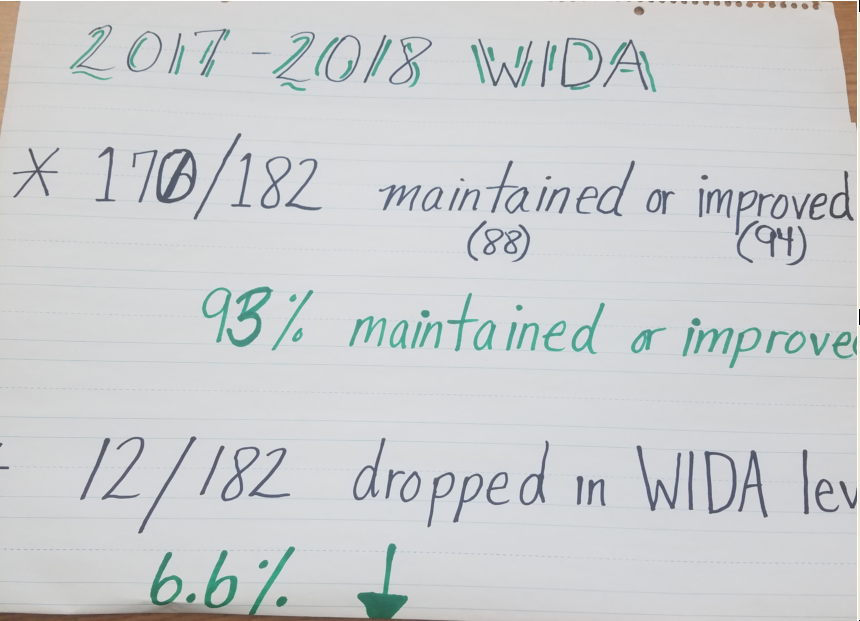 2017-2018 WIDA
* 170/182 maintained or improved
(88) (94)
93% maintained or improved
12/182 dropped in WIDA lev
6.6% ↓